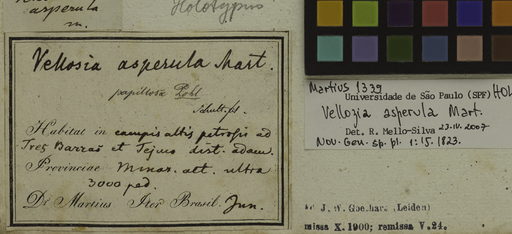 asperula
m.
Holotypus
Vellosia asperula Mart.
papillosa Pohl
Schult. fl.
Habitat in campis altis petrosis ad
Tres Barras et Tejuco distr. adam.
Provinciae Minar. alt. ultra
3000 ped.
Dr Martius Iter Brasil. Jun.
Martius 1339
Universidade de São Paulo (SPF) HOL
Vellozia asperula Mart.
Det. R. Mello-Silva 23.IV.2007
Nov. Gen. sp. pl. 1:15. 1823.
J. W. Goethart (Leiden)
missa X.1900; remissa V.21.